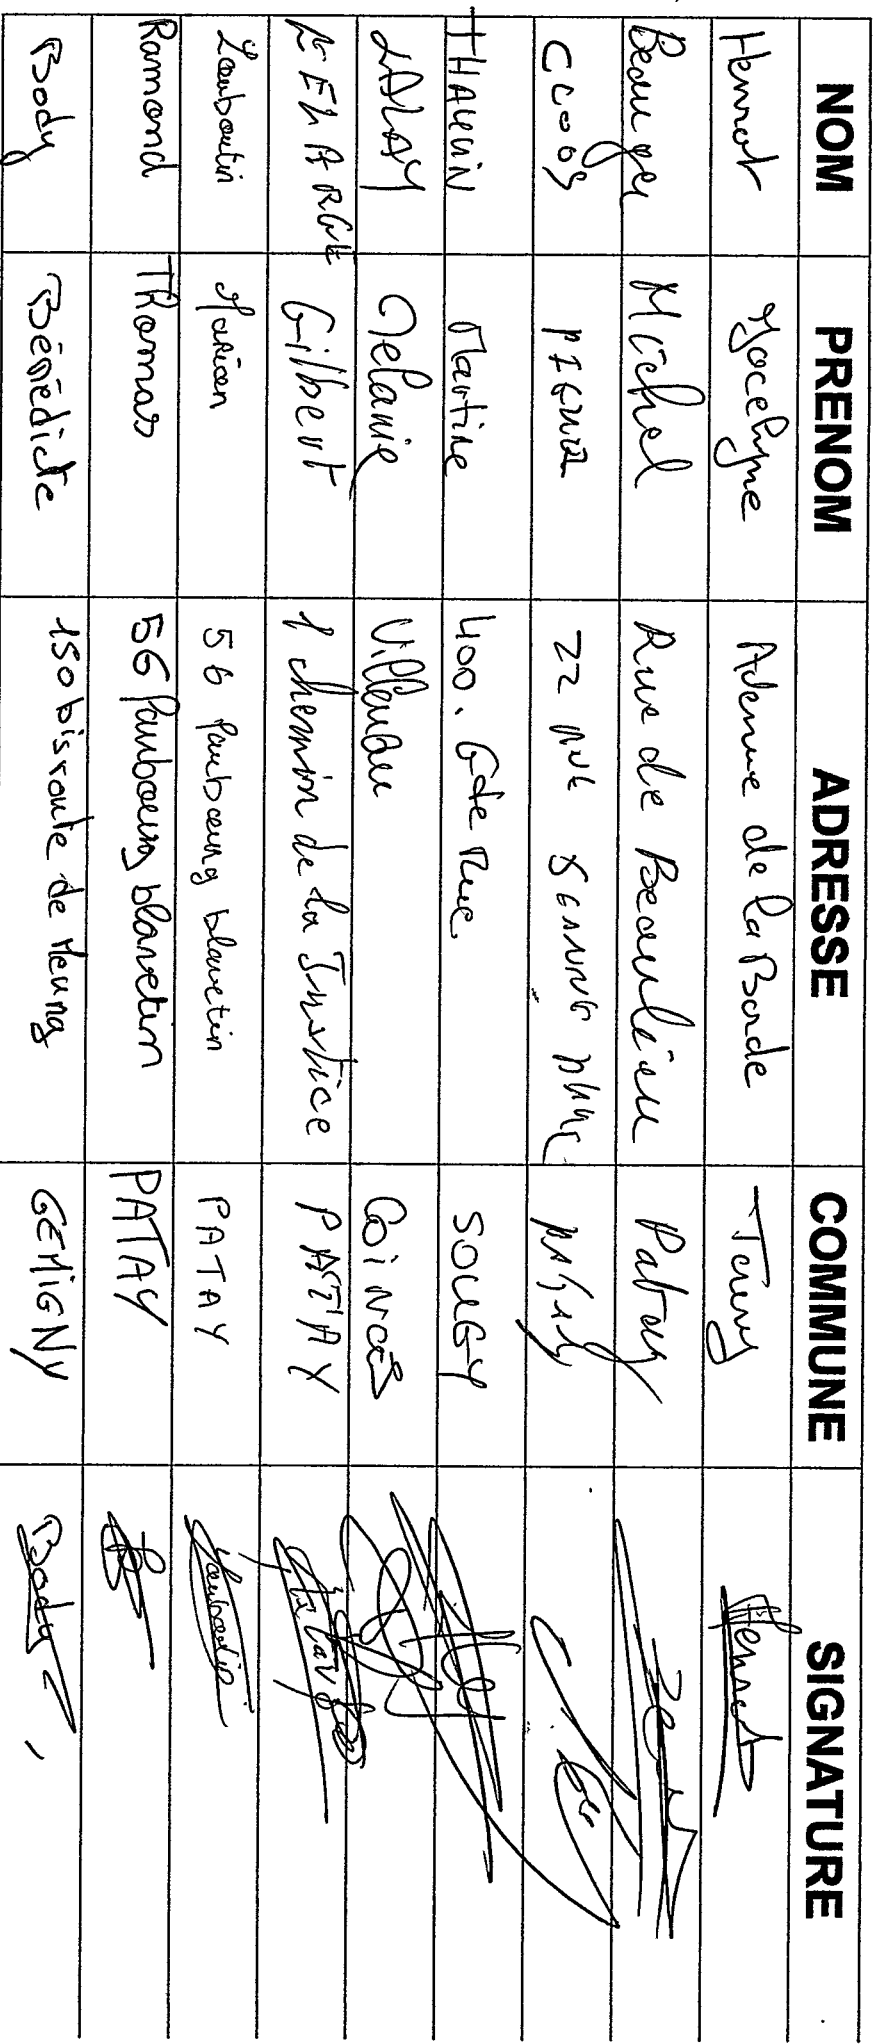 NOM PRENOM ADRESSE COMMUNE SIGNATURE
Henrot Jocelyne Avenue de la Borde Henrot
Beauger Michel Rue de Beaulieu Patay
CLOOS 22 rue
THAUVIN Martine 400. Gde Rue. SOUGY
LALAY Melanie COINCES
DELARGE Gilbert 1 chemin de la Justice PATAY
Louboutin Marion 56 faubourg blavetin PATAY Louboutin
Ramond Thomas 56 faubourg blavetin PATAY
Body Bénédicte 150 bis route de Meung GEMIGNY Body